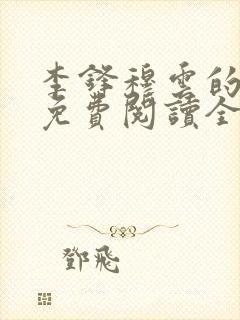 李鋒穆雲的
免費閱讀全
鄧飛